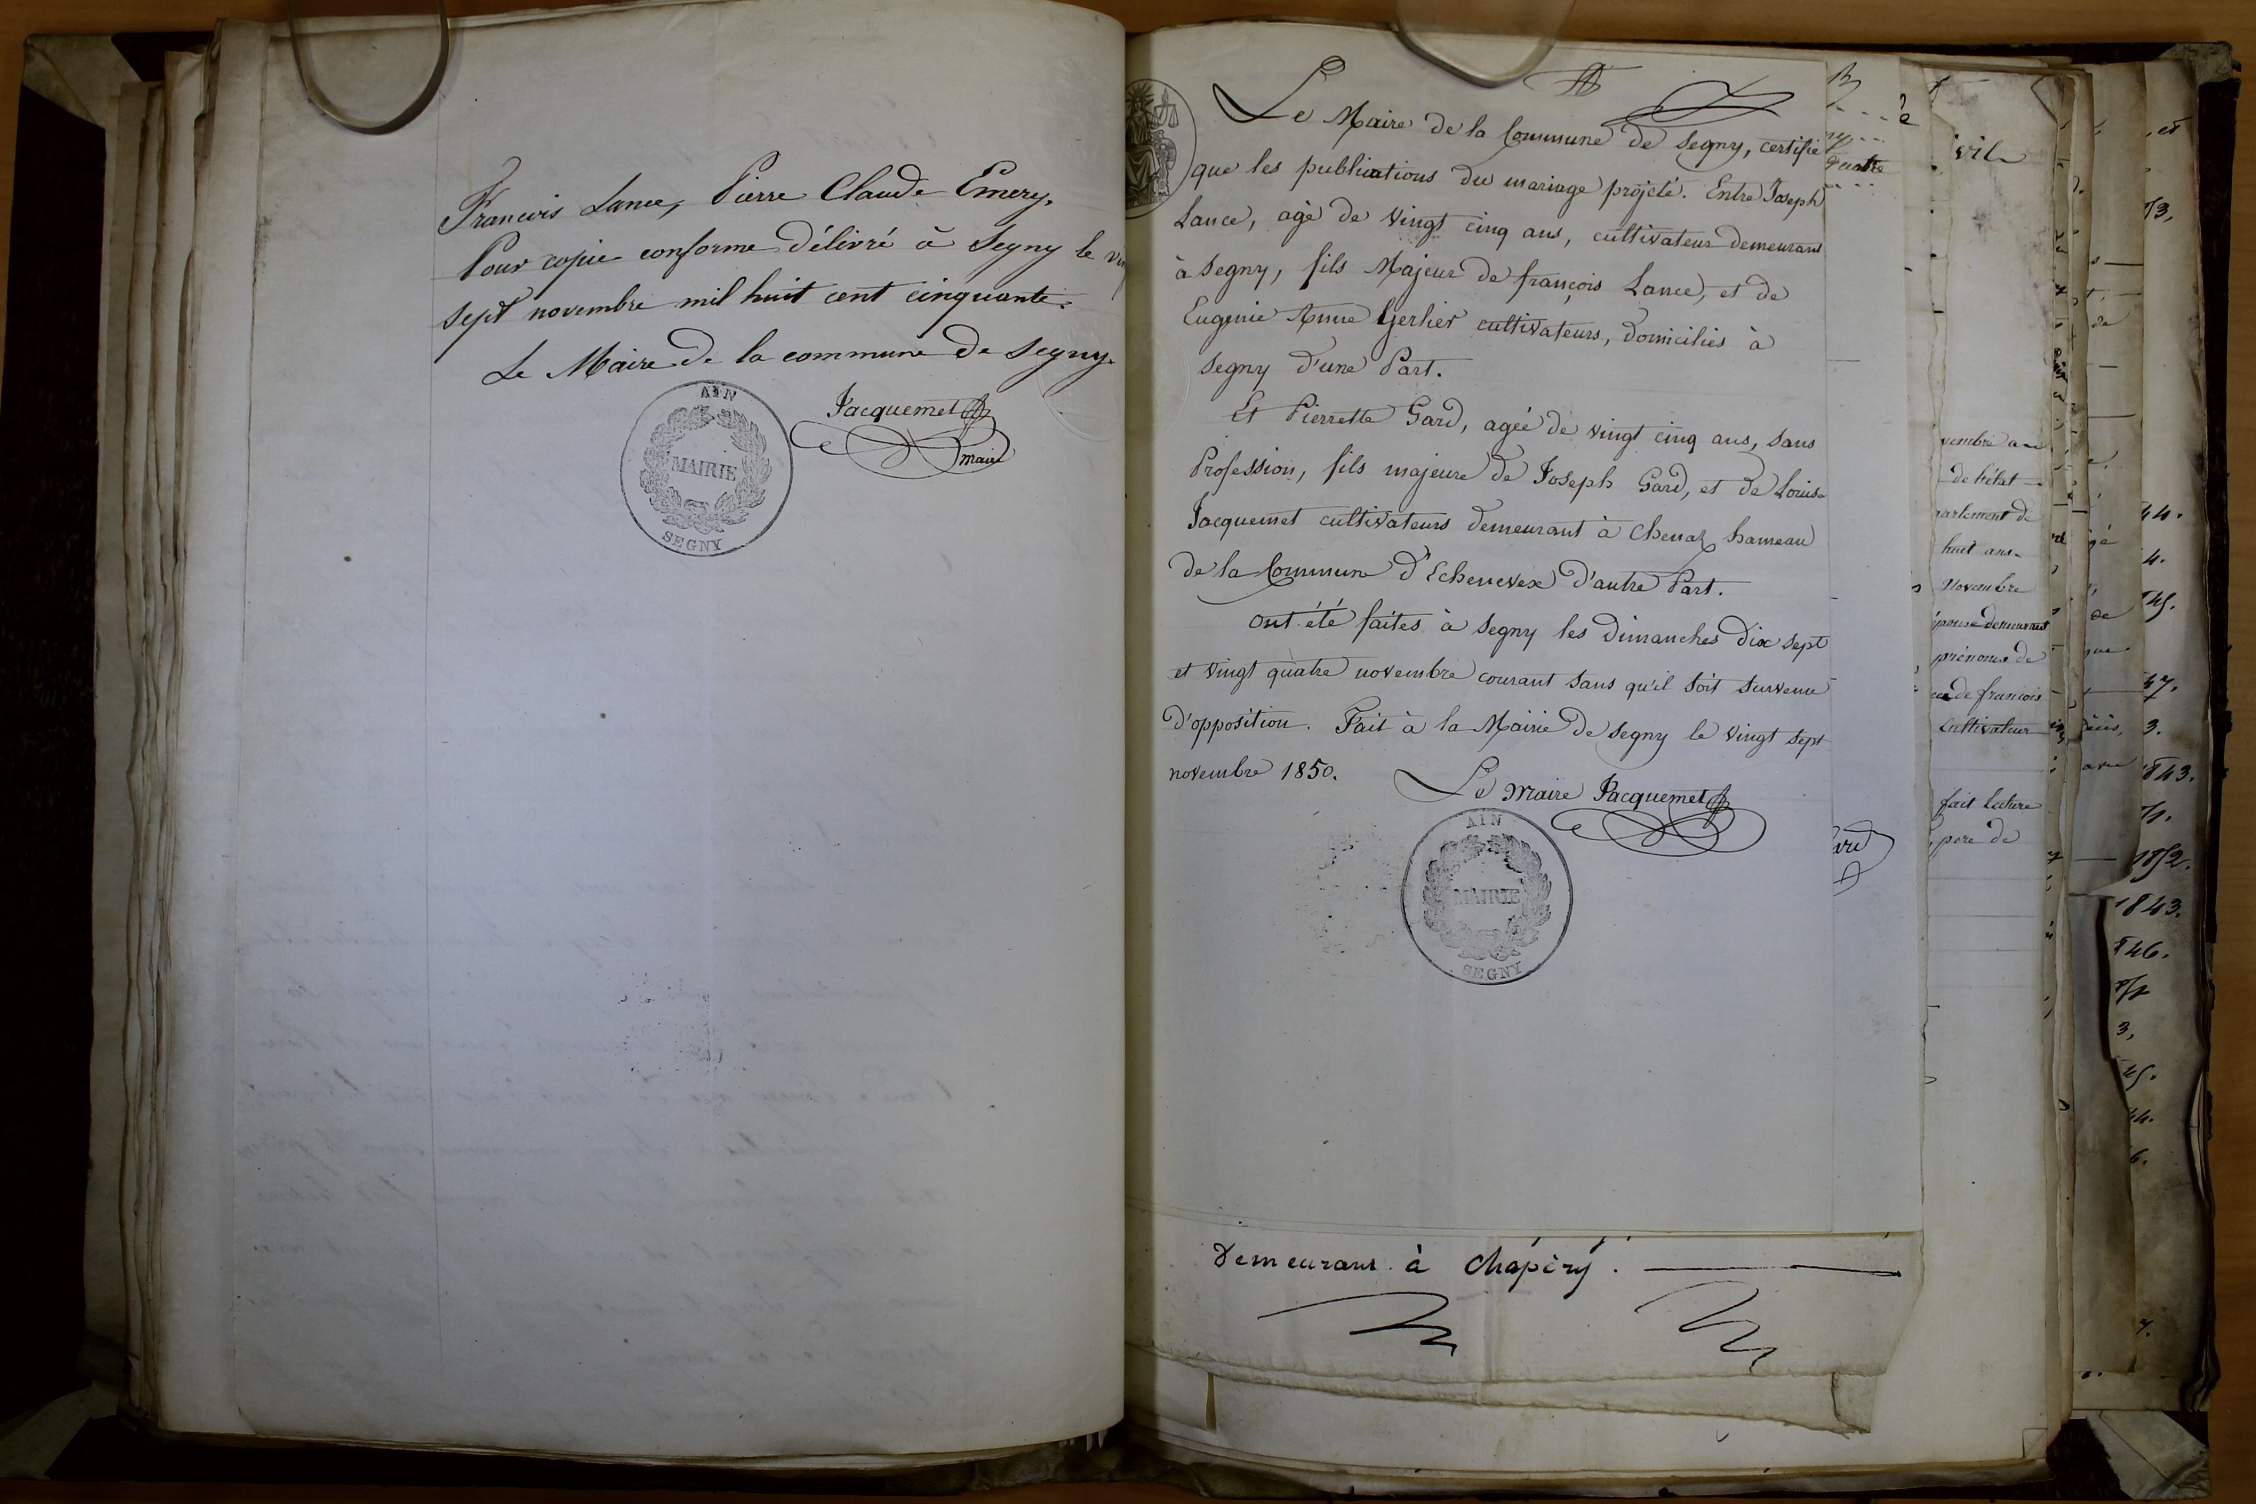 Francois Lance, Pierre Claude Emery.
Pour copie conforme délivré à Segny le
sept novembre mil huit cent cinquante.
Le Maire de la commune de Segny.
Jacquemet
maire
AIN
MAIRIE
SEGNY
Le Maire de la Commune de Segny, certifie
que les publications du mariage projeté. Entre Joseph
Lance, agé de vingt cinq ans, cultivateur demeurant
à Segny, fils Majeur de françois Lance, et de
Eugenie Anne Gerlier cultivateurs, domiciliés à
Segny d'une Part.
Et Pierrette Gard, agée de vingt cinq ans, sans
Profession, fils majeure de Joseph Gard, et de Louise
Jacquemet cultivateurs demeurant à Chenaz hameau
de la Commune d'Echenevex d'autre Part.
Ont été faites à Segny les dimanches dix sept
et vingt quatre novembre courant sans qu'il soit survenu
d'opposition. Fait à la Mairie de Segny le vingt sept
novembre 1850.
Le Maire Jacquemet
AIN
MAIRIE
SEGNY
Demeurant à Chapéry.
vembre
de l'état
huit ans
Novembre
demeurant
prénoms de
de francois
cultivateur
fait lecture
1843.
1852.
1843.